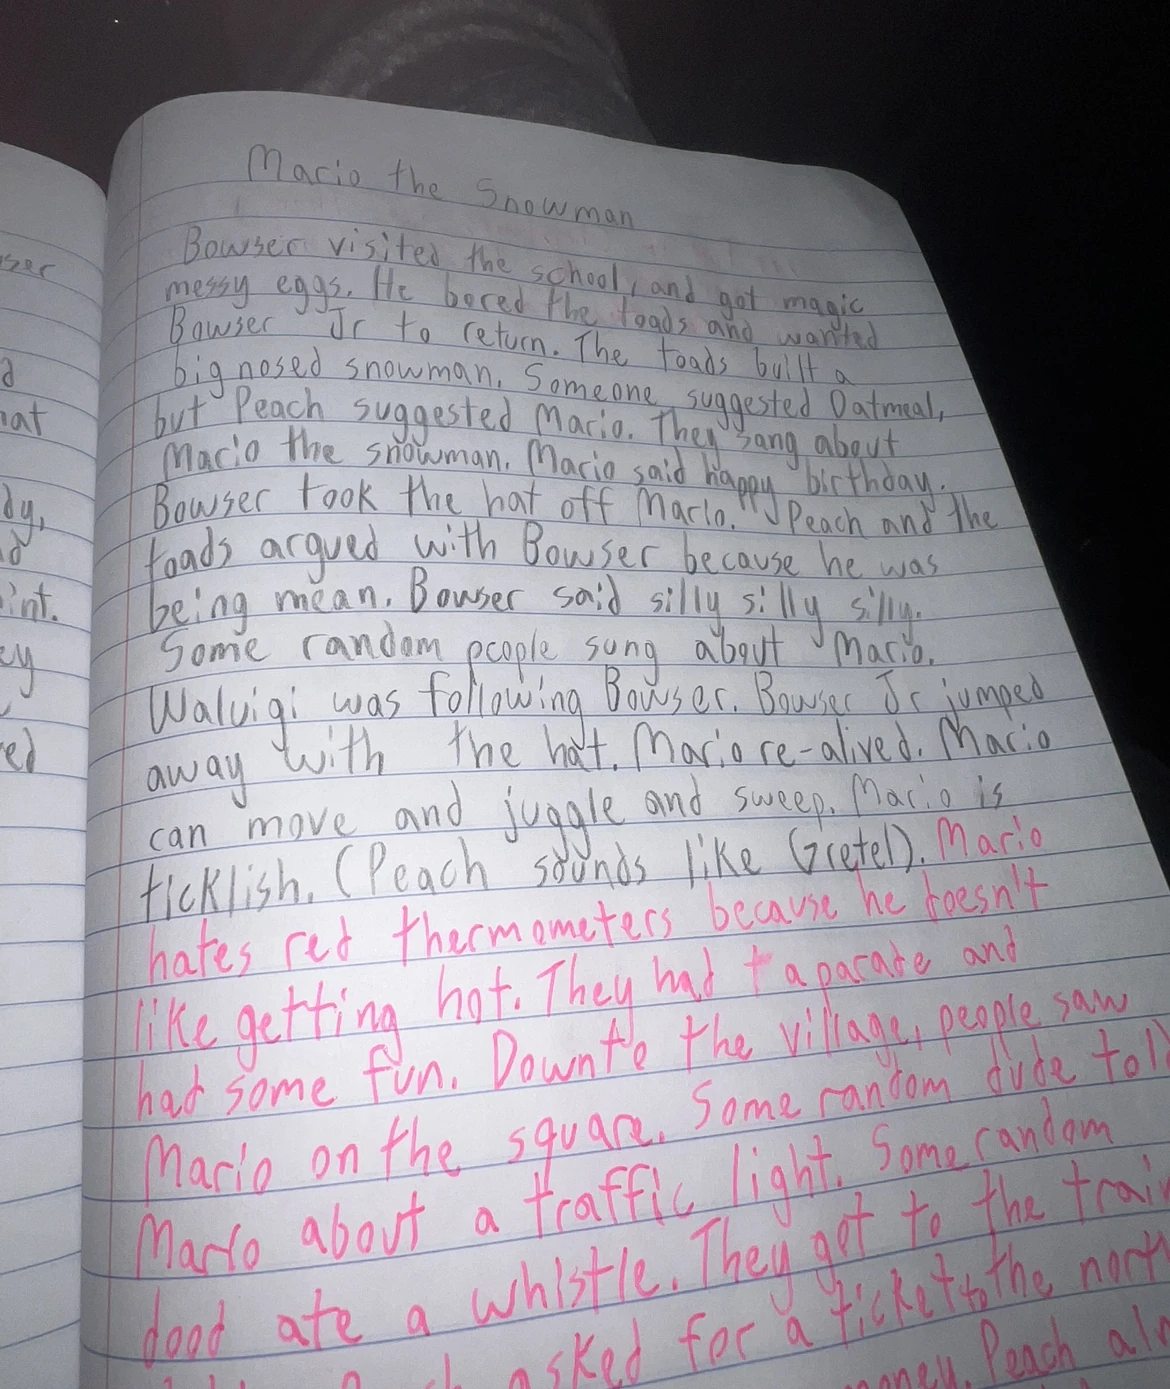 Mario the Snowman
Bowser visited the school, and got magic
messy eggs. He bored the toads and wanted
Bowser Jr to return. The toads built a
big nosed snowman. Someone suggested Oatmeal,
but Peach suggested Mario. They sang about
Mario the snowman. Mario said happy birthday.
Bowser took the hat off Mario. Peach and the
toads argued with Bowser because he was
being mean. Bowser said silly silly silly.
Some random people sung about Mario.
Waluigi was following Bowser. Bowser Jr jumped
away with the hat. Mario re-alived. Mario
can move and juggle and sweep. Mario is
ticklish. (Peach sounds like Gretel). Mario
hates red thermometers because he doesn't
like getting hot. They had a parade and
had some fun. Down to the village, people saw
Mario on the square. Some random dude told
Mario about a traffic light. Some random
dood ate a whistle. They got to the train
asked for a ticket to the north
money. Peach
ser
hat
dy,
int.
ey
ed